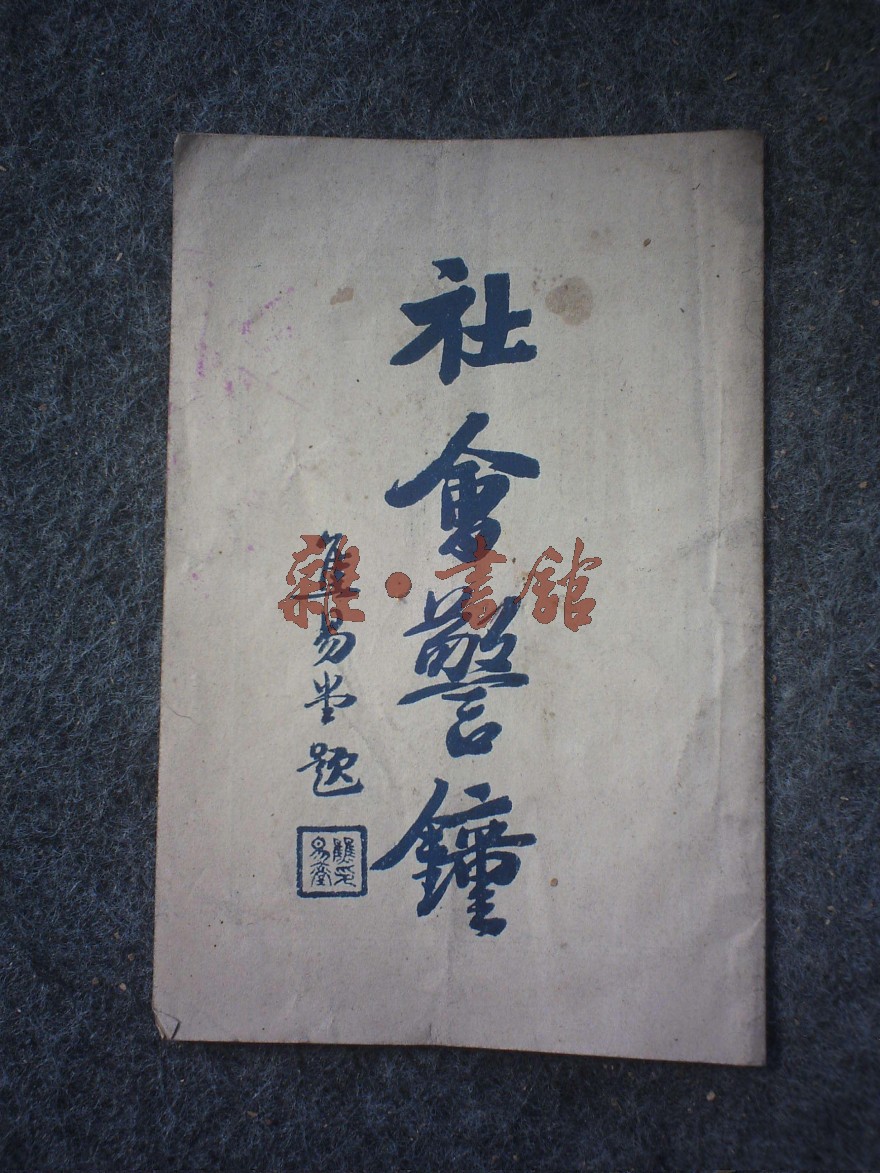 社會警鐘
焦易堂題
易堂
雜·書館